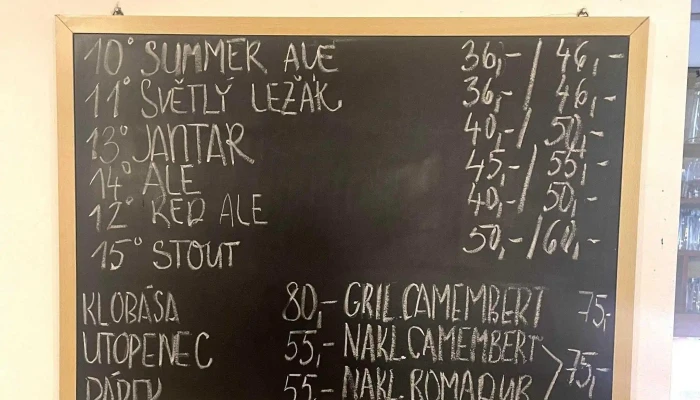 10° SUMMER ALE 36,- / 46,-
11° SVĚTLÝ LEŽÁK 36,- / 46,-
13° JANTAR 40,- / 50,-
14° ALE 45,- / 55,-
12° RED ALE 40,- / 50,-
15° STOUT 50,- / 60,-
KLOBÁSA 80,- GRIL.CAMEMBERT 75,-
UTOPENEC 55,- NAKL.CAMEMBERT
75,-
PÁREK 55,- NAKL.ROMADUR